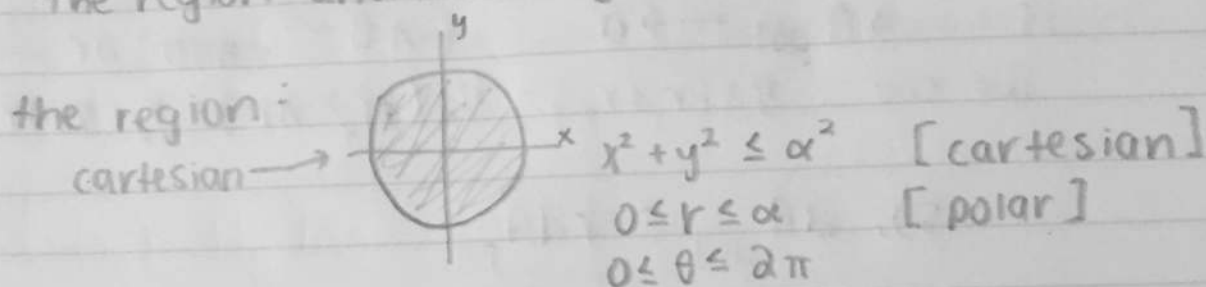 The region
y
the region:
cartesian → x x² + y² ≤ α² [cartesian]
0 ≤ r ≤ α [polar]
0 ≤ θ ≤ 2π